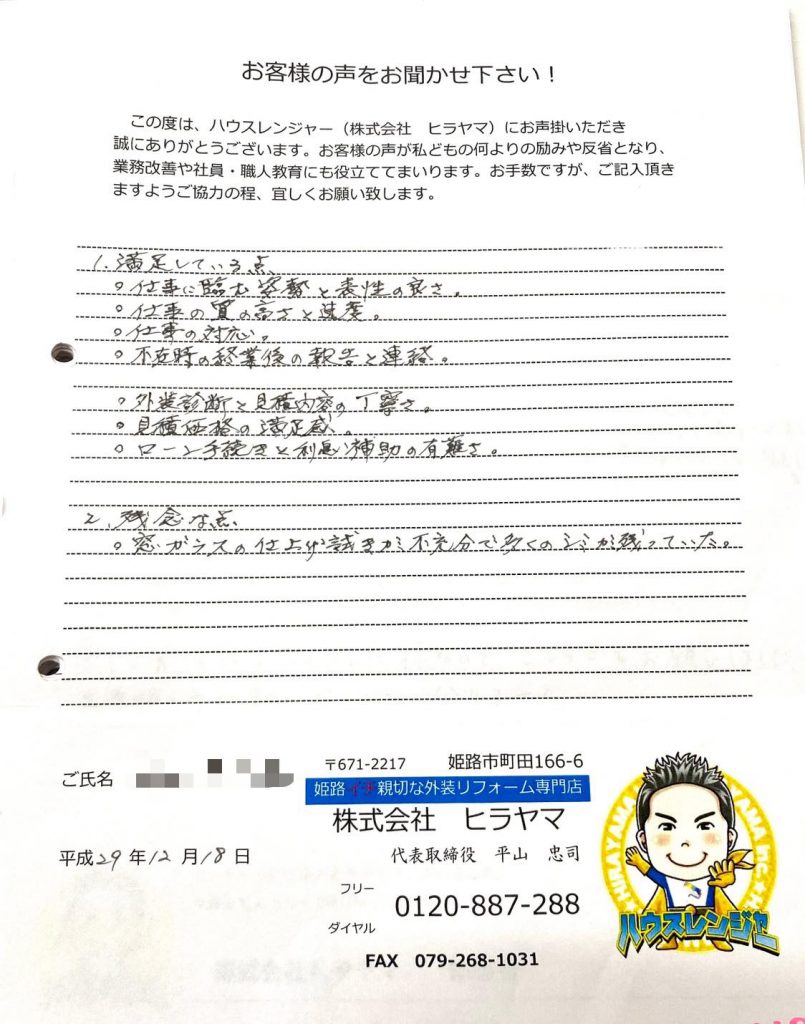 お客様の声をお聞かせ下さい！
この度は、ハウスレンジャー（株式会社　ヒラヤマ）にお声掛いただき
誠にありがとうございます。お客様の声が私どもの何よりの励みや反省となり、
業務改善や社員・職人教育にも役立ててまいります。お手数ですが、ご記入頂き
ますようご協力の程、宜しくお願い致します。
1.満足している点
○仕事に臨む姿勢と表性の良さ。
○仕事の質の高さと速度。
○仕事の対応。
○不在時の終業後の報告と連絡。
○外装診断と見積内容の丁寧さ。
○見積価格の満足感。
○ローン手続きと利息補助の有難さ。
2.残念な点
○窓ガラスの仕上げ拭きが不充分で多くのシミが残っていた。
ご氏名
〒671-2217　姫路市町田166-6
姫路イチ親切な外装リフォーム専門店
株式会社　ヒラヤマ
平成29年12月18日
代表取締役　平山　忠司
フリー
ダイヤル
0120-887-288
FAX　079-268-1031
HIRAYAMA
ハウスレンジャー